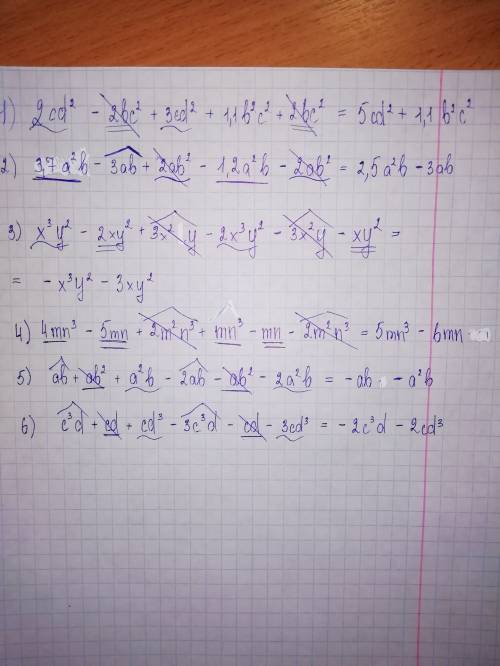 1) 2cd² - 2bc² + 3cd² + 1,1b²c² + 2bc² = 5cd² + 1,1b²c²
2) 3,7a²b - 3ab + 2ab² - 1,2a²b - 2ab² = 2,5a²b - 3ab
3) x³y² - 2xy² + 3x²y - 2x³y² - 3x²y - xy² =
= - x³y² - 3xy²
4) 4mn³ - 5mn + 2m²n³ + mn³ - mn - 2m²n³ = 5mn³ - 6mn
5) ab + ab² + a²b - 2ab - ab² - 2a²b = - ab - a²b
6) c³d + cd + cd³ - 3c³d - cd - 3cd³ = - 2c³d - 2cd³